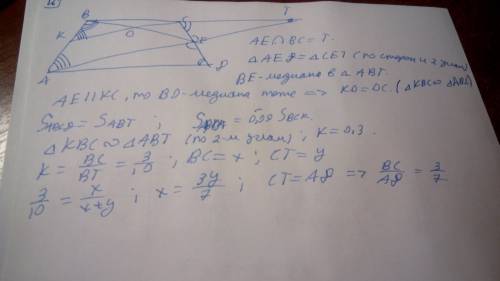 B
T
K
O
E
A
D
AE∩BC=T.
△AED=△CET (по сторон и 2 углам)
BE-медиана в △ABT.
AE∥KC, то BO-медиана тоже => KO=OC. (△KBC∞△ABT)
S_ABCD = S_ABT ; = 0,09 S_BCK.
△KBC∞△ABT (по 2-м углам) ; K=0,3.
K = BC/BT = 3/10 ; BC=x ; CT=y
3/10 = x/(x+y) ; x = 3y/7 ; CT=AD => BC/AD = 3/7